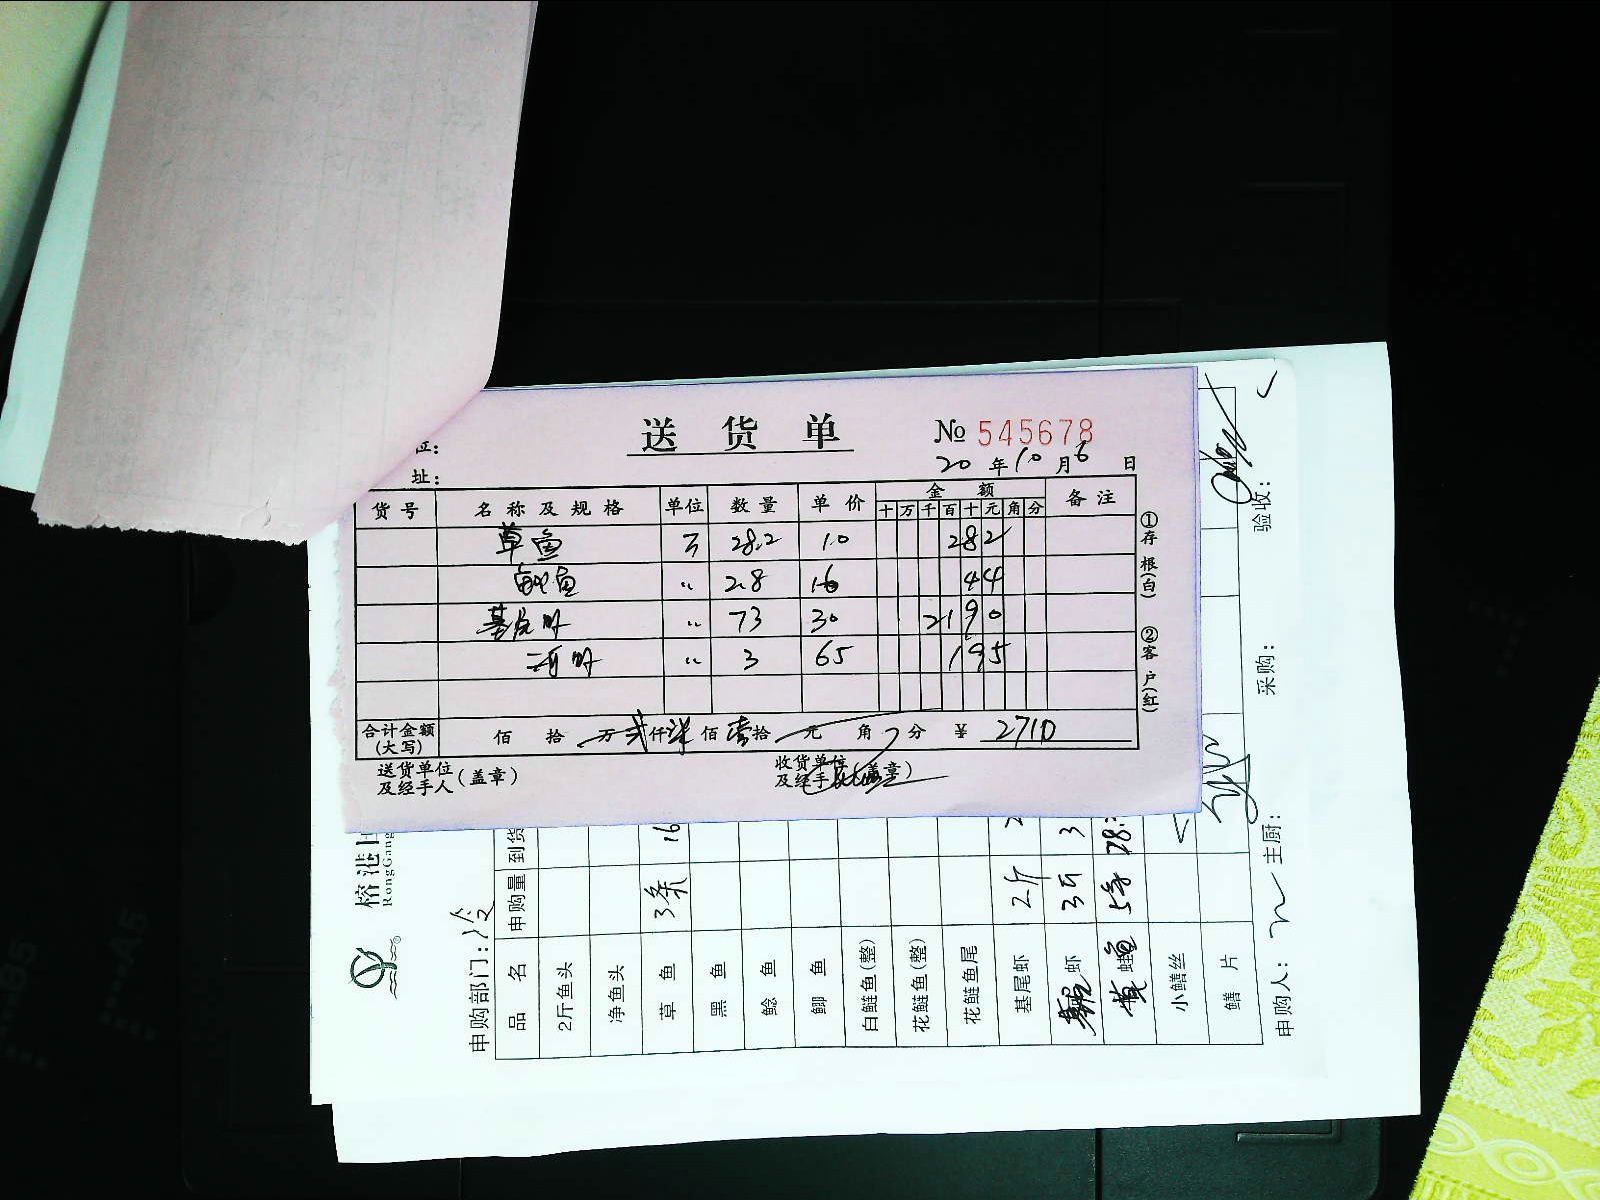 送货单 № 545678
位：
址：
20 年 10 月 6 日
货号 名称及规格 单位 数量 单价 金额 备注
十 万 千 百 十 元 角 分
草鱼 斤 28.2 10 282
鱼 〃 2.8 16 44
基尾虾 〃 73 30 2190
河虾 〃 3 65 195
合计金额(大写) 佰 拾 万 贰 仟 柒 佰 壹 拾 元 角 分 ¥ 2710
送货单位及经手人(盖章) 收货单位及经手人(盖章)
①存根(白) ②客户(红)
榕港
RongGang
申购部门：冷
品名 申购量 到货
2斤鱼头
净鱼头
草鱼 3条 16
黑鱼
鲶鱼
鲫鱼
白鲢鱼(整)
花鲢鱼(整)
花鲢鱼尾
基尾虾 2斤 2
虾 3斤 3
草鱼 5条 28.
小鳝丝
鳝片
申购人： 主厨： 采购： 验收：